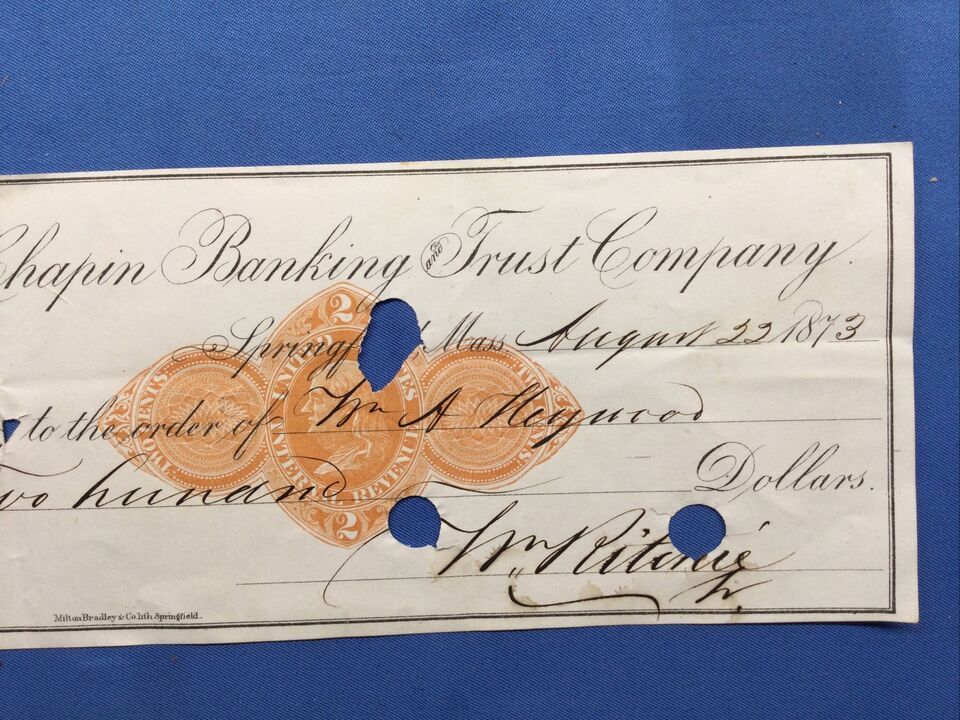 Chapin Banking and Trust Company.
Springf Mass August 22 1873
to the order of Wm A Heywood
Two hundred
Dollars.
Wm Ritchie
Tr.
Milton Bradley & Co. lith. Springfield.
2
UNITED STATES
INTERNAL REVENUE
TWO CENTS
2